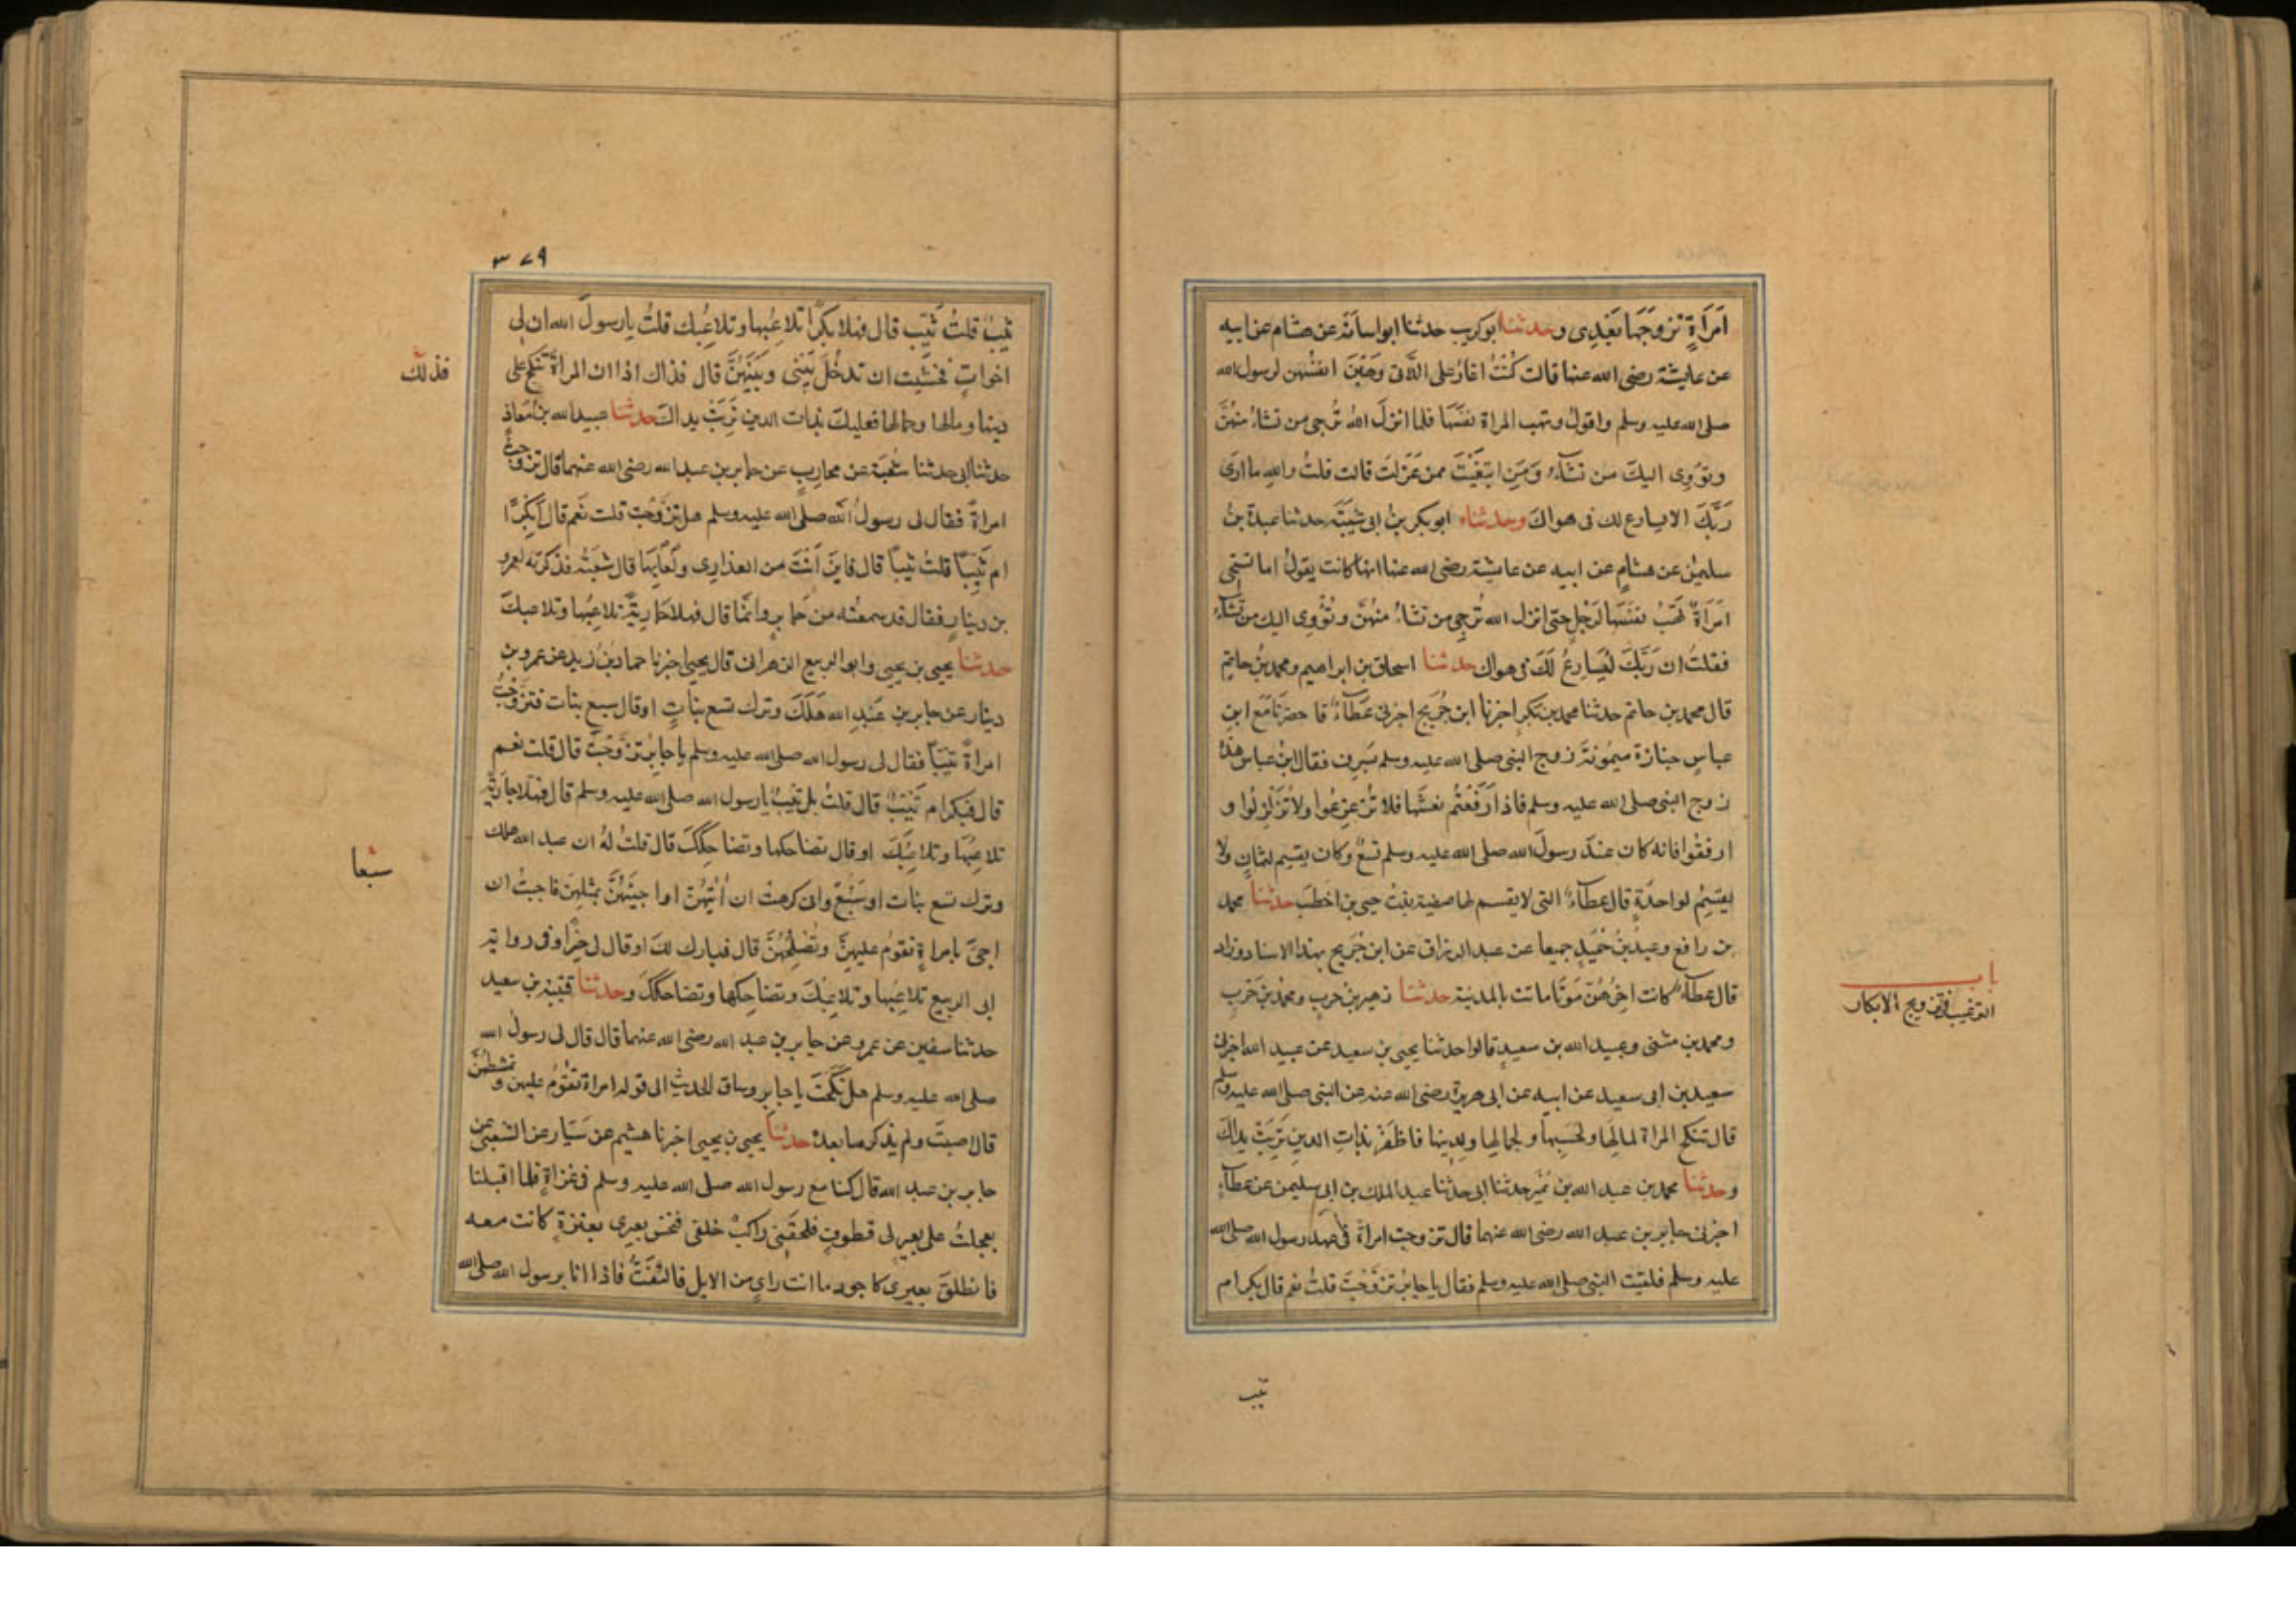 امرأةٍ تزوجها بَعْدِى وحدثنا ابوكريب حدثنا ابواسامة عن هشام عن ابيه
عن عايشة رضى الله عنها قالت كُنْتُ اغارُ على اللَّاتى وَهَبْنَ انفسَهن لرسول الله
صلى الله عليه وسلم واقولُ وتهب المراة نفسَهَا فلما انزلَ اللهُ تُرجى من تشاءُ منهُنَّ
وتؤوِى اليكَ من تشآءُ وَمَنِ ابتَغَيْتَ ممن عَزَلتَ قالت قلتُ والله ما ارَى
رَبَّكَ الا يسارع لك فى هواكَ وحدثناه ابو بكر بنُ ابى شَيْبَة حدثنا عبدة بنُ
سليمٰن عن هشامٍ عن ابيه عن عايشة رضى الله عنها انها كانت يقولُ اما تستحى
امرَأةٌ تَهَبُ نفسَهَا لرَجُلٍ حتى انزل الله تُرجِى من تشاءُ منهُنَّ وتُؤْوِى اليك من تشآءُ
فقلتُ ان رَبَّكَ لَيُسَارِعُ لَكَ فى هواك حدثنا اسحاق بن ابراهيم ومحمد بنُ حاتمٍ
قال محمد بن حاتم حدثنا محمد بن بكرٍ اخبرنا ابن جُرَيج اخبرنى عَطَآءٌ قا حضرنا مَعَ ابنِ
عباسٍ جنازة ميمُونَةَ زوج النبى صلى الله عليه وسلم بسَرِف فقال ابنُ عباس هذهِ
زوج النبى صلى الله عليه وسلم فاذا رَفَعْتُم نعشَهَا فلا تُزَعزِعُوا ولا تُزَلزِلُوا و
ارفقُوا فانه كان عندَ رسولَ الله صلى الله عليه وسلم تسعٌ وكان يقسِم لثمانٍ ولا
يقسِمُ لواحدَةٍ قال عطآءٌ التى لا يقسم لها صفية بنتُ حيى بن اخطَبَ حدثنا محمد
بن رافع وعبدُ بنُ حُمَيدٍ جميعا عن عبد الرزاق عن ابن جُرَيج بهذا الاسناد وزاد
قال عطآءٌ كانت اخِرَهُنَّ مَوتًا ماتت بالمدينة حدثنا زهير بنُ حربٍ ومحمد بنُ حَربٍ
ومحمد بن مثنى وعبيد الله بن سعيدٍ قالوا حدثنا يحيى بن سعيد عن عبيد الله اخبرنى
سعيد بن ابى سعيد عن ابيه عن ابى هريرة رضى الله عنه عن النبى صلى الله عليه وسلم
قال تنكح المراة لمالها ولحَسَبِها ولجمالِها ولدينها فاظفَرْ بذاتِ الدينِ تَرِبَتْ يداكَ
وحدثنا محمد بن عبد الله بن نُمَيرٍ حدثنا ابى حدثنا عبد الملك بن ابى سليمن عن عطآءٍ
اخبرنى جابر بن عبد الله رضى الله عنهما قال تزوجت امراةً فى عهد رسول الله صلى الله
عليه وسلم فلقيت النبى صلى الله عليه وسلم فقال يا جابرُ تَزَوَّجْتَ قلتُ نعم قال بكرام
باب
الترغيب فى تزويج الابكار
ثيب
٣٧٩
ثيبٌ قلتُ ثَيِّب قال فهلا بِكْرًا تلاعِبُها وتلاعِبُك قلتُ يا رسولَ الله ان لى
اخواتٍ فخشيت ان تدخُلَ بَيْنِى وبَيْنَهُنَّ قال فذاك اذا ان المراةَ تنكح على
دينها ومالها وجمالها فعليكَ بذات الدين تَرِبَتْ يداكَ حدثنا عبيد الله بنُ مُعاذٍ
حدثنا ابى حدثنا شُعبَة عن محاربٍ عن جابر بن عبد الله رضى الله عنهما قال تزوجتُ
امراةً فقال لى رسولُ اللّه صلى الله عليه وسلم هل تزوَّجْتَ قلت نعم قال اَبِكْرًا
ام ثَيِّبًا قلتُ ثيبًا قال فاينَ اَنتَ من العذارِى ولُعابِهَا قال شعبَةُ فذكرته لعمرو
بن دينارٍ فقال قد سمعتُه من جابرٍ وانَّمَا قال فهلا جاريةً تلاعِبُها وتلاعبكَ
حدثنا يحيى بن يحيى وابو الربيع الزهرانى قال يحيى اخبرنا حماد بنُ زيد عن عمرو بن
دينار عن جابر بن عَبدِ الله هَلَكَ وترك تسع بناتٍ او قال سبع بنات فتزوجْتُ
امراةً ثيبًا فقال لى رسول الله صلى الله عليه وسلم يا جابِرُ تَزَوَّجْتَ قال قلت نعم
قال فبكر ام ثَيِّبٌ قال قلتُ بل ثيبٌ يا رسول الله صلى الله عليه وسلم قال فهلا جاريةً
تلاعِبُهَا وتلاعِبُكَ او قال تضاحكها وتضاحِكُكَ قال قلتُ لهُ ان عبد الله هلك
وترك تسع بنات او سَبْعٌ وانى كرهتُ ان اٰتِيَهُنَّ او اجيئَهُنَّ بمثلِهِنَّ فاحببتُ ان
اجئَ بامراةٍ تقومُ عليهِنَّ وتُصلِحُهُنَّ قال فبارك لكَ او قال لى خيرًا وفى رواية
ابى الربيع تلاعِبُها وتلاعِبُكَ وتضاحِكها وتضاحككَ وحدثنا قتيبة بن سعيد
حدثنا سفين عن عمرو عن جابر بن عبد الله رضى الله عنهما قال قال لى رسولُ الله
صلى الله عليه وسلم هل نَكَحْتَ يا جابر وساق الحديث الى قوله امراة تقُومُ عليهن وتمشطهُنَّ
قال اصبتَ ولم يذكر ما بعدهُ حدثنا يحيى بن يحيى اخبرنا هشيم عن سَيَّار عن الشعبى عن
جابر بن عبد الله قال كنا مع رسول الله صلى الله عليه وسلم فى غزاةٍ فلما اقبلنا
تعجلتُ على بعيرٍ لى قطوفٍ فلحقَنِى راكبٌ خلفى فنخس بعيرى بعنزةٍ كانت معه
فانطلقَ بعيرى كاجود ما انت راىٍ من الابل فالتفَتُّ فاذا انا برسول الله صلى الله
فذلك
سَبْعا